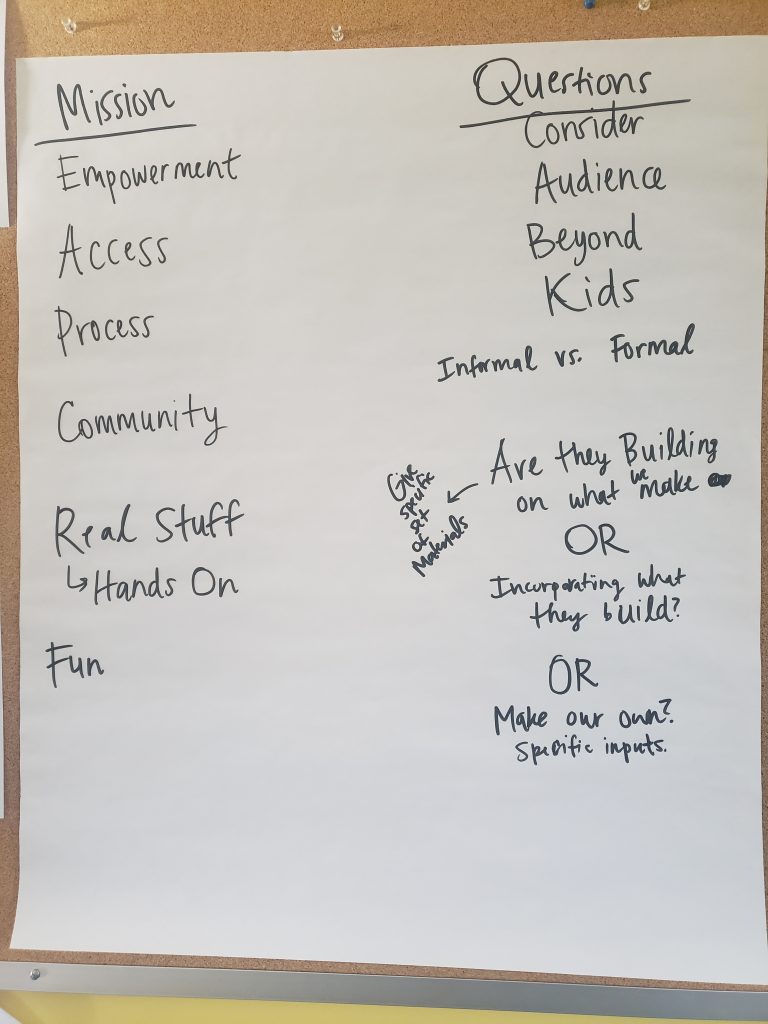 Mission
Empowerment
Access
Process
Community
Real Stuff
↳Hands On
Fun
Questions
Consider
Audience
Beyond
Kids
Informal vs. Formal
Are they Building
on what we make
Give
specific
set
of
Materials
OR
Incorporating what
they build?
OR
Make our own?
Specific inputs.